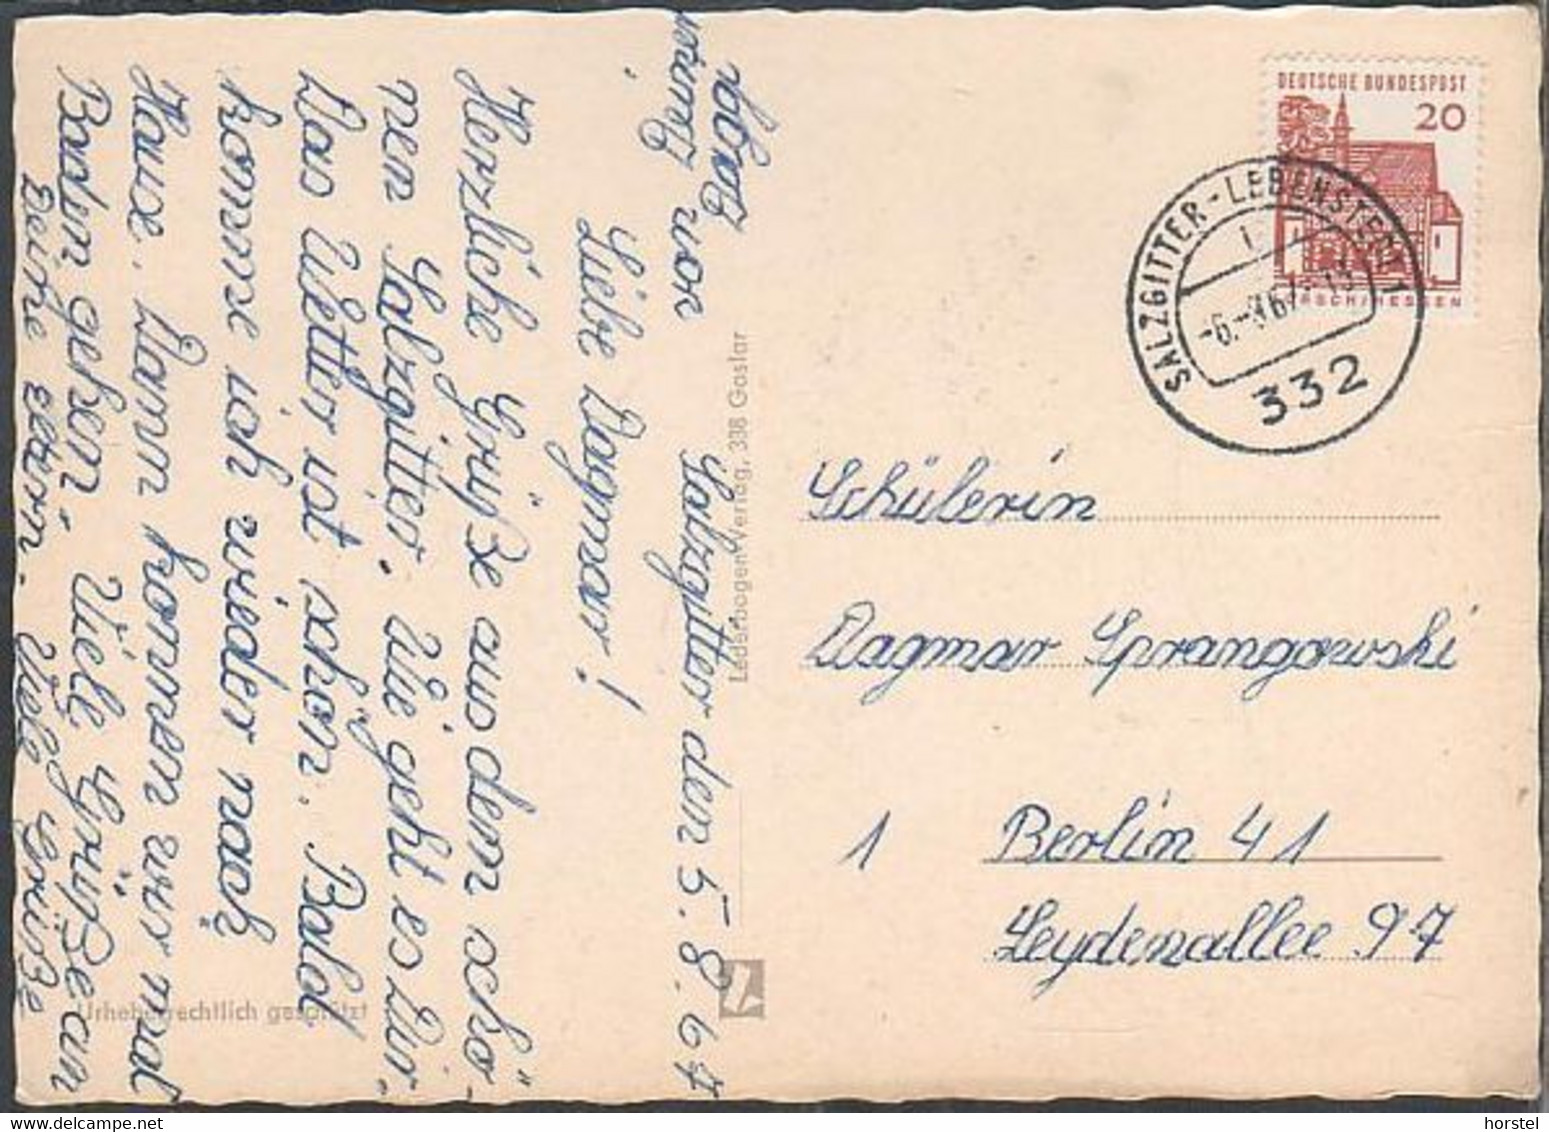 Salzgitter den 5.8.67
Liebe Dagmar!
Herzliche Grüße aus dem schö-
nen Salzgitter. Wie geht es Dir.
Das Wetter ist schön. Bald
komme ich wieder nach
Hause. Dann kommen wir mal
Baden gehen. Viele Grüße an
Deine Eltern. Viele Grüße
von
Dagmar
Urheberrechtlich geschützt
Lederbogen Verlag, 338 Goslar
DEUTSCHE BUNDESPOST
20
LORSCH/HESSEN
SALZGITTER-LEBENSTEDT 1
332
Schülerin
Dagmar Sprangowski
1 Berlin 41
Leydenallee 97
horstel